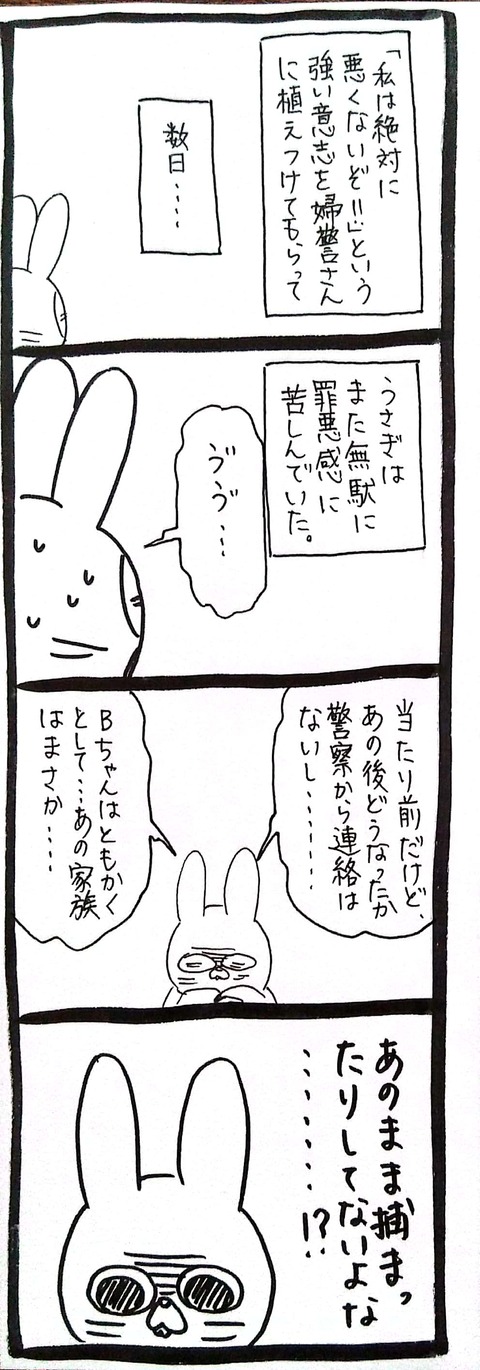 「私は絶対に
悪くないぞ!!」という
強い意志を婦警さん
に植えつけてもらって
数日‥‥
うさぎは
また無駄に
罪悪感に
苦しんでいた。
ゔゔ…
当たり前だけど、
あの後どうなったか
警察から連絡は
ないし‥‥‥‥
Bちゃんはともかく
として…あの家族
はまさか‥‥
あのまま捕まっ
たりしてないよな
‥‥‥‥!?